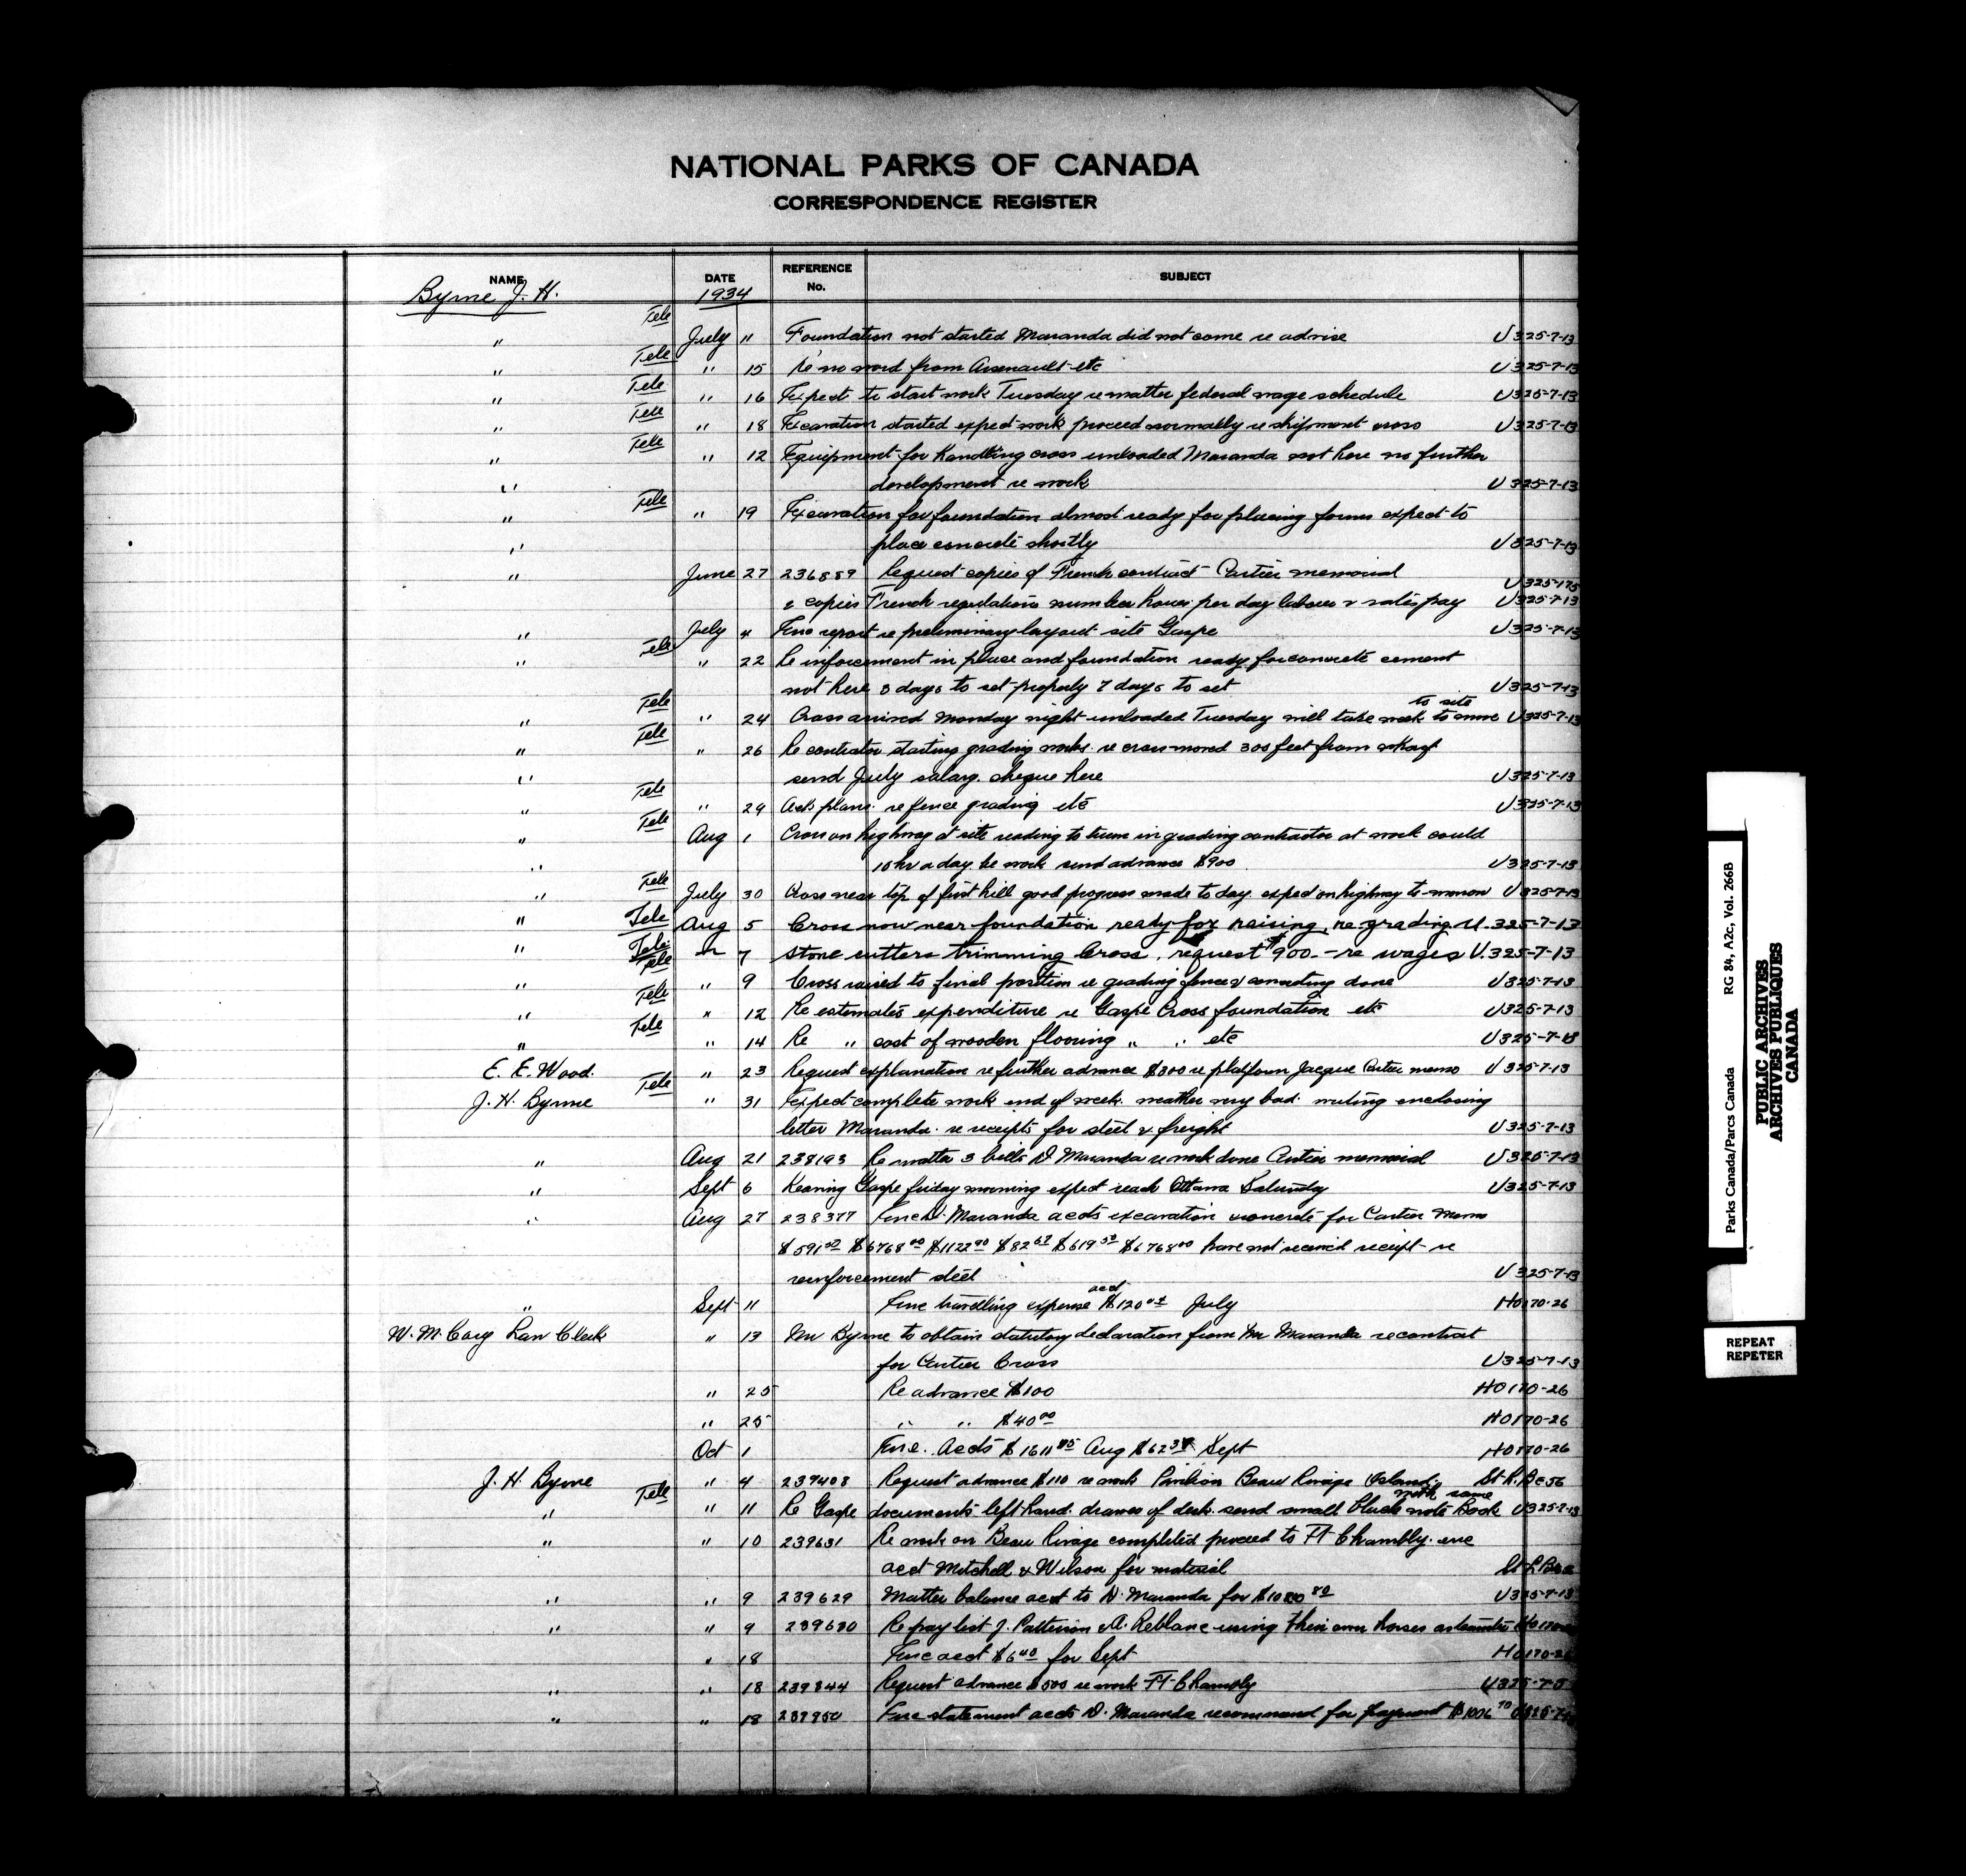 NATIONAL PARKS OF CANADA
CORRESPONDENCE REGISTER
NAME DATE REFERENCE No. SUBJECT
Byrne J. H. 1934
" Tele July 11 Foundation not started Maranda did not come re advise U325-7-13
" Tele " 15 Re no word from Arsenault etc U325-7-13
" Tele " 16 Expect to start work Tuesday re matter federal wage schedule U325-7-13
" Tele " 18 Excavation started expect work proceed normally re shipment cross U325-7-13
" Tele " 12 Equipment for handling cross unloaded Maranda not here no further
" development re work U325-7-13
" Tele " 19 Excavation for foundation almost ready for placing forms expect to
" place concrete shortly U325-7-13
" June 27 236889 Request copies of French contract Cartier memorial U325-175
2 copies French regulations number hours per day labour & rates pay U325-7-13
" July 4 Enc report re preliminary layout site Gaspe U325-7-13
" Tele " 22 Reinforcement in place and foundation ready for concrete cement
not here 3 days to set properly 7 days to set U325-7-13
" Tele " 24 Cross arrived Monday night unloaded Tuesday will take week to move to site U325-7-13
" Tele " 26 Re contractor starting grading works re cross moved 300 feet from wharf
" send July salary cheque here U325-7-13
" Tele " 29 Acts plans re fence grading etc U325-7-13
" Tele Aug 1 Cross on highway at site reading to turn in grading contractor at work could
" 10 hr a day be work send advance $900 U325-7-13
" Tele July 30 Cross near top of first hill good progress made to day expect on highway to-morrow U325-7-13
" Tele Aug 5 Cross now near foundation ready for raising, re grading U.325-7-13
" Tele " 7 Stone cutters trimming Cross, request $900.- re wages U.325-7-13
" Tele " 9 Cross raised to final position re grading fence & cementing done U325-7-13
" Tele " 12 Re estimates expenditure re Gaspé Cross foundation etc U325-7-13
" Tele " 14 Re " cost of wooden flooring " " etc U325-7-13
E. E. Wood. " 23 Request explanation re further advance $300 re platform Jacque Cartier memo U325-7-13
J. H. Byrne Tele " 31 Expect complete work end of week. weather very bad. writing enclosing
letter Maranda re receipts for steel & freight U325-7-13
" Aug 21 238193 Re matter 3 bills D Maranda re work done Cartier memorial U325-7-13
" Sept 6 Leaving Gaspe friday morning expect reach Ottawa Saturday U325-7-13
" Aug 27 238377 Enc D. Maranda accts excavation concrete for Cartier Memo
$591.50 $6768.00 $1122.90 $82.67 $619.50 $6768.00 have not received receipt re
reinforcement steel U325-7-13
" Sept 11 Enc travelling expense acct $120.02 July HO170-26
W. M. Cory Law Clerk " 13 Mr Byrne to obtain statutory declaration from Mr Maranda re contract
for Cartier Cross U325-7-13
" 25 Re advance $100 HO170-26
" 25 " " $40.00 HO170-26
Oct 1 Enc. Accts Aug Sept HO170-26
J. H. Byrne " 4 239408 Request advance $110 re work Pavilion Beau Rivage Island St. L.
" Tele " 11 Re Gaspe documents left hand drawer of desk send small black note Book with same U325-7-13
" " 10 239631 Re work on Beau Rivage completed proceed to Ft Chambly. enc
acct Mitchell & Wilson for material St L
" " 9 239629 Matter balance acct to D. Maranda for U325-7-13
" " 9 239630 Re pay list J. Patterson & A. Leblanc using their own horses as teamsters HO170
" 18 Enc acct $6.40 for Sept HO170-26
" " 18 239844 Request advance $500 re work Ft Chambly U325-7-
" " 18 239950 Enc statement accts D. Maranda recommend for payment $1006.70 U325-7-13
Parks Canada/Parcs Canada RG 84, A2c, Vol. 266B
PUBLIC ARCHIVES
ARCHIVES PUBLIQUES
CANADA
REPEAT
REPETER